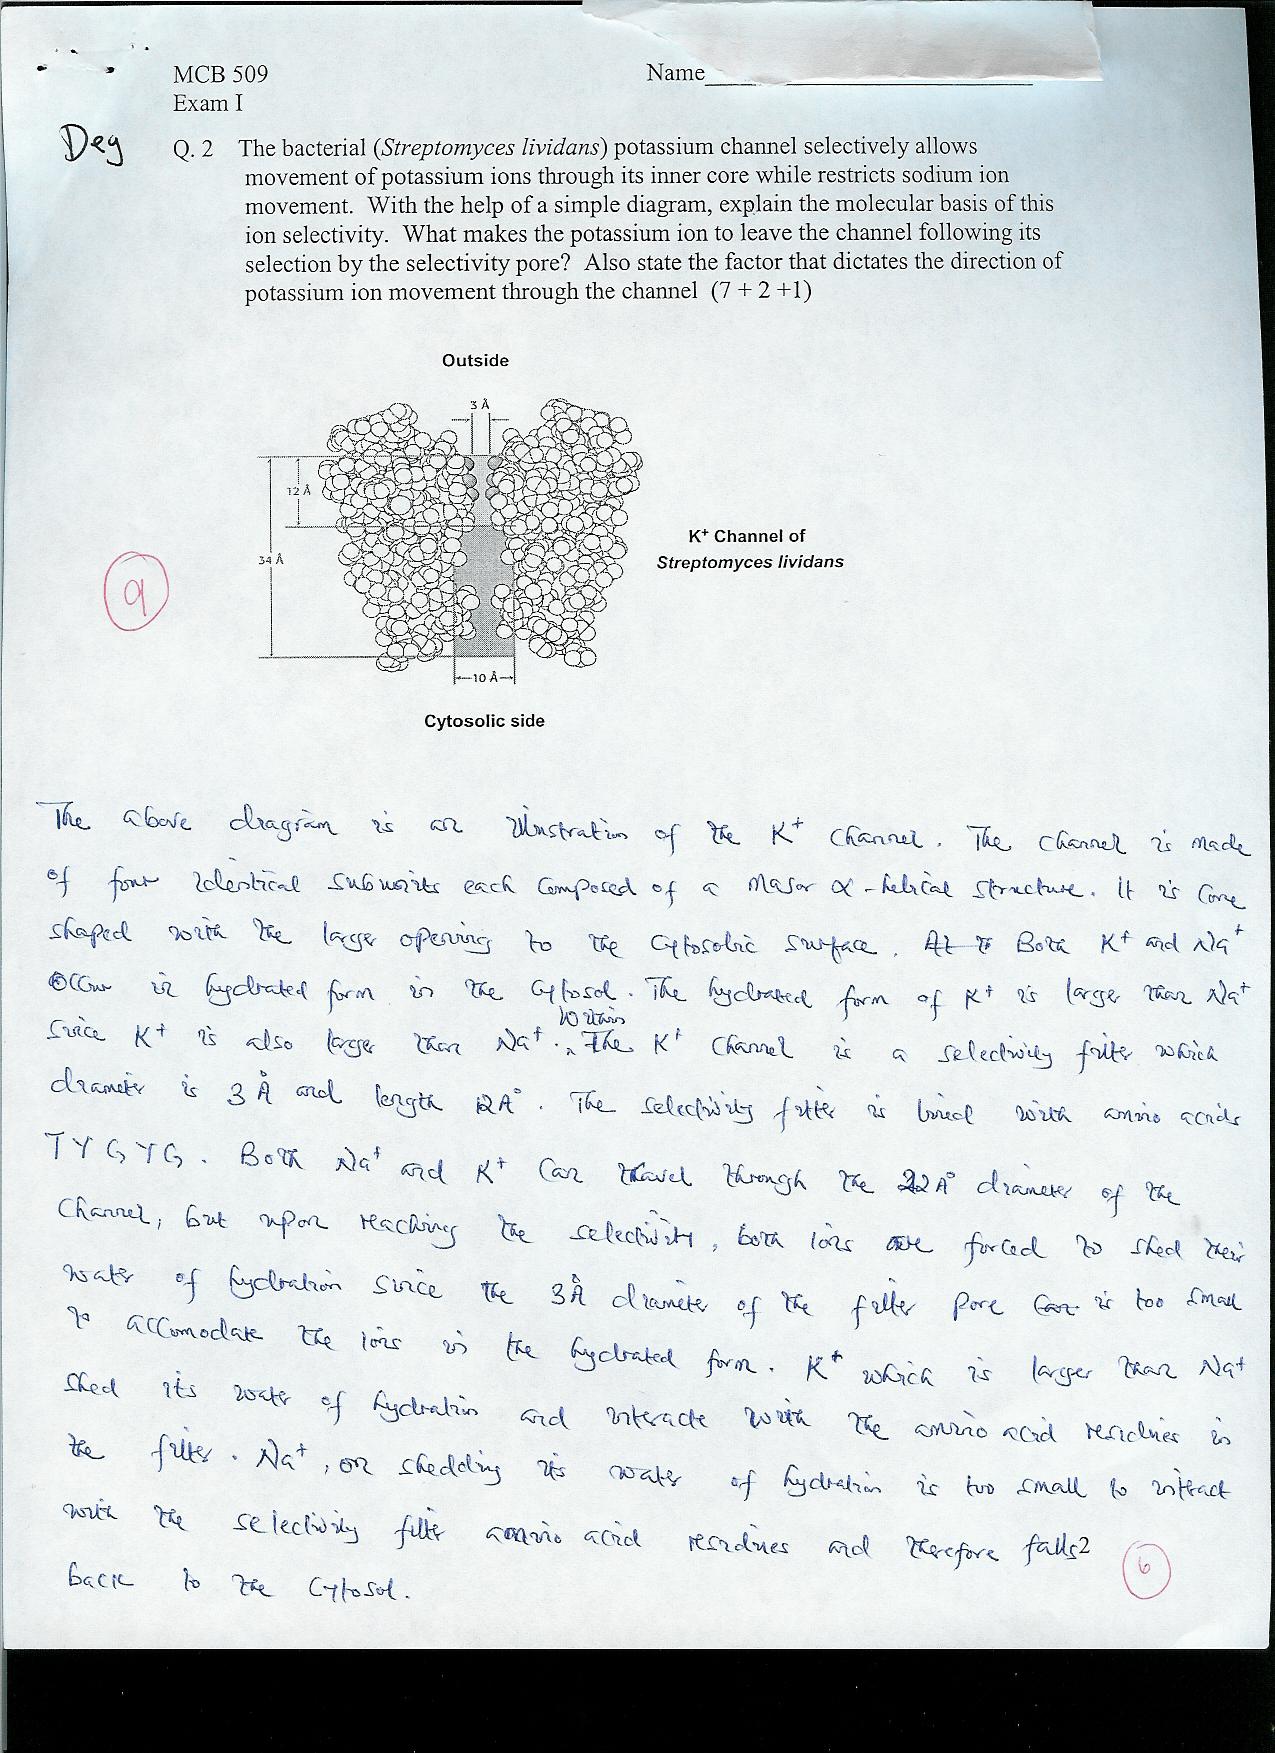 MCB 509
Name
Exam I
Deg
Q. 2 The bacterial (Streptomyces lividans) potassium channel selectively allows
movement of potassium ions through its inner core while restricts sodium ion
movement. With the help of a simple diagram, explain the molecular basis of this
ion selectivity. What makes the potassium ion to leave the channel following its
selection by the selectivity pore? Also state the factor that dictates the direction of
potassium ion movement through the channel (7 + 2 +1)
Outside
3 Å
12 Å
34 Å
K+ Channel of
Streptomyces lividans
9
10 Å
Cytosolic side
The above diagram is an illustration of the K+ channel. The channel is made
of four identical subunits each composed of a major α-helical structure. It is cone
shaped with the larger opening to the cytosolic surface. At Both K+ and Na+
occur in hydrated form in the cytosol. The hydrated form of K+ is larger than Na+
since K+ is also larger than Na+. Within The K+ channel is a selectivity filter which
diameter is 3 Å and length 12A°. The selectivity filter is lined with amino acids
TYGYG. Both Na+ and K+ can travel through the 22A° diameter of the
channel, but upon reaching the selectivity, both ions are forced to shed their
water of hydration since the 3Å diameter of the filter pore is too small
to accomodate the ions in the hydrated form. K+ which is larger than Na+
shed its water of hydration and interacte with the amino acid residues in
the filter. Na+, on shedding its water of hydration is too small to interact
with the selectivity filter amino acid residues and therefore falls 2
back to the cytosol.
6